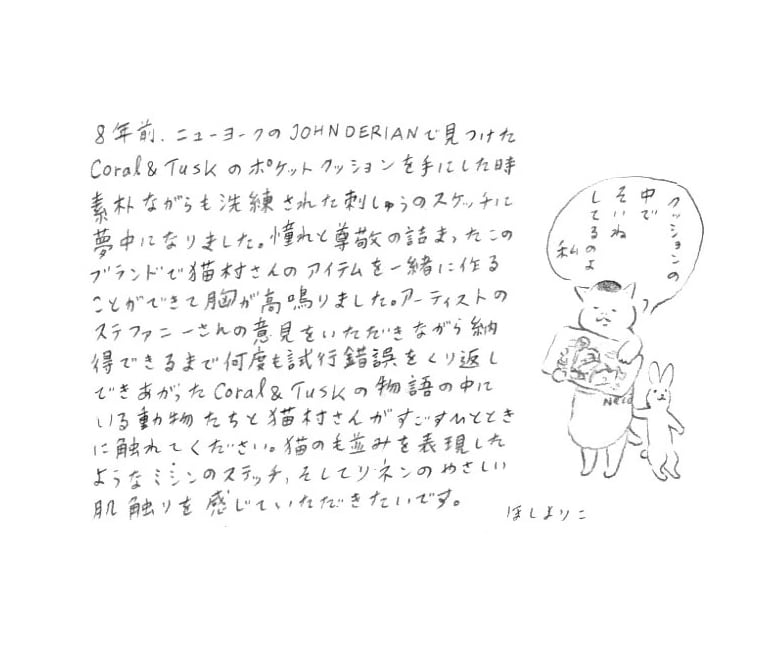 8年前、ニューヨークのJOHN DERIANで見つけた
Coral & Tusk のポケットクッションを手にした時
素朴ながらも洗練された刺しゅうのスケッチに
夢中になりました。憧れと尊敬の詰まったこの
ブランドで猫村さんのアイテムを一緒に作る
ことができて胸が高鳴りました。アーティストの
ステファニーさんの意見をいただきながら納
得できるまで何度も試行錯誤をくり返し
できあがったCoral & Tuskの物語の中に
いる動物たちと猫村さんがすごすひととき
に触れてください。猫の毛並みを表現した
ようなミシンのステッチ、そしてリネンのやさしい
肌触りを感じていただきたいです。
ほしよりこ
クッションの
中で
そいね
してるのよ
私
NEKO